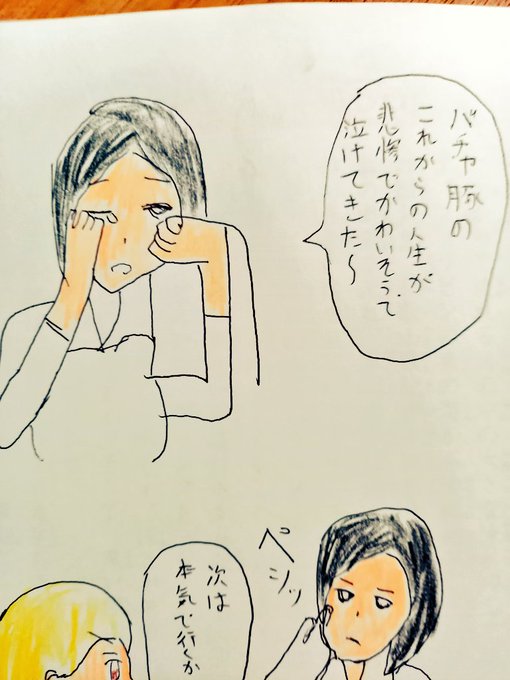 パチャ豚の
これからの人生が
悲惨でかわいそうで
泣けてきた〜
ペシッ
次は
本気で行くか